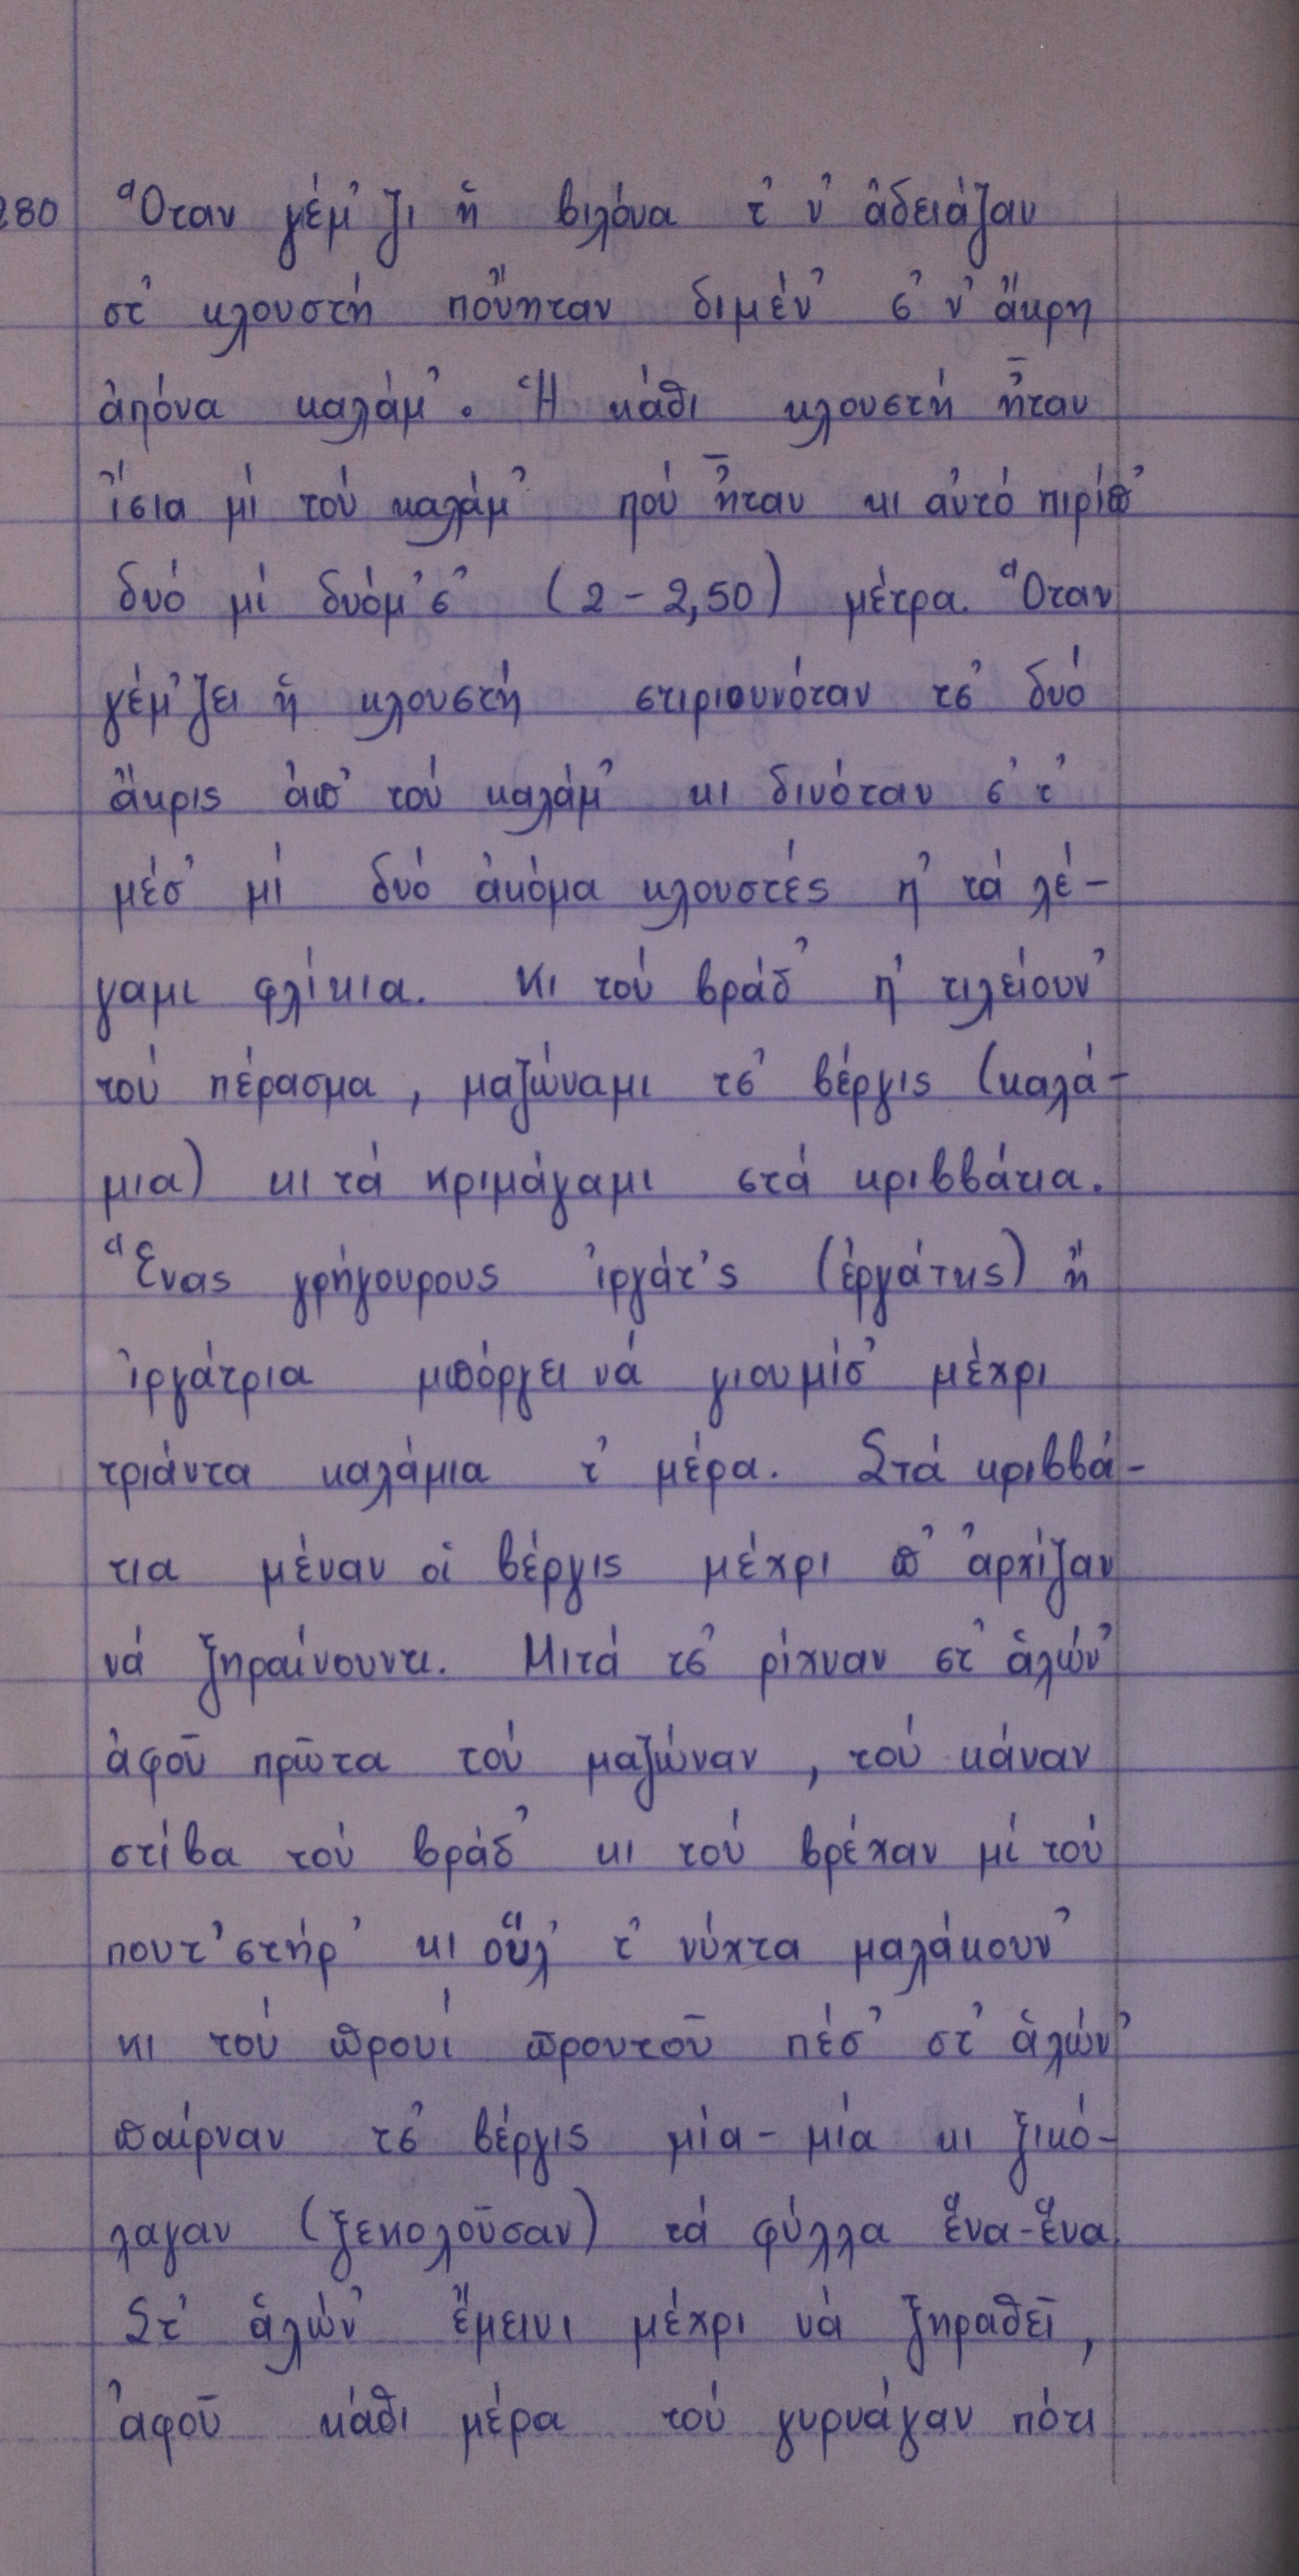 280 Ὅταν γέμ' ζι ἡ βιλόνα τ' ν' ἀδειάζαν
στ' κλουστή ποὔηταν διμέν' σ' ν' ἄκρη
ἀπόνα καλάμ'. Ἡ κάθι κλουστή ἦταν
ἴσια μί τού καλάμ' πού ἦταν κι αὐτό πιρίπ'
δυό μί δυόμ'σ' (2 - 2,50) μέτρα. Ὅταν
γέμ' ζει ἡ κλουστή στιριουνόταν τσ' δυό
ἄκρις ἀπ' τού καλάμ' κι δινόταν σ' τ'
μέσ' μί δυό ἀκόμα κλουστές π' τά λέ-
γαμι φλίκια. Κι τού βράδ' π' τιλείουν'
τού πέρασμα, μαζώναμι τσ' βέργις (καλά-
μια) κι τά κριμάγαμι στά κριββάτια.
Ἕνας γρήγουρους ἰργάτ'ς (ἐργάτης) ἤ
ἰργάτρια μπόργει νά γιουμίσ' μέχρι
τριάντα καλάμια τ' μέρα. Στά κριββά-
τια μέναν οἱ βέργις μέχρι π' ἀρχίζαν
νά ξηραίνουντι. Μιτά τσ' ρίχναν στ' ἁλών'
ἀφοῦ πρῶτα τού μαζώναν, τού κάναν
στίβα τού βράδ' κι τού βρέχαν μί τού
πουτ'στήρ' κι οὕλ' τ' νύχτα μαλάκουν'
κι τού προυί προυτοῦ πέσ' στ' ἁλών'
παίρναν τσ' βέργις μία-μία κι ξικό-
λαγαν (ξεκολοῦσαν) τά φύλλα ἕνα-ἕνα.
Στ' ἁλών' ἔμεινι μέχρι νά ξηραθεῖ,
ἀφοῦ κάθι μέρα τού γυρνάγαν πότι